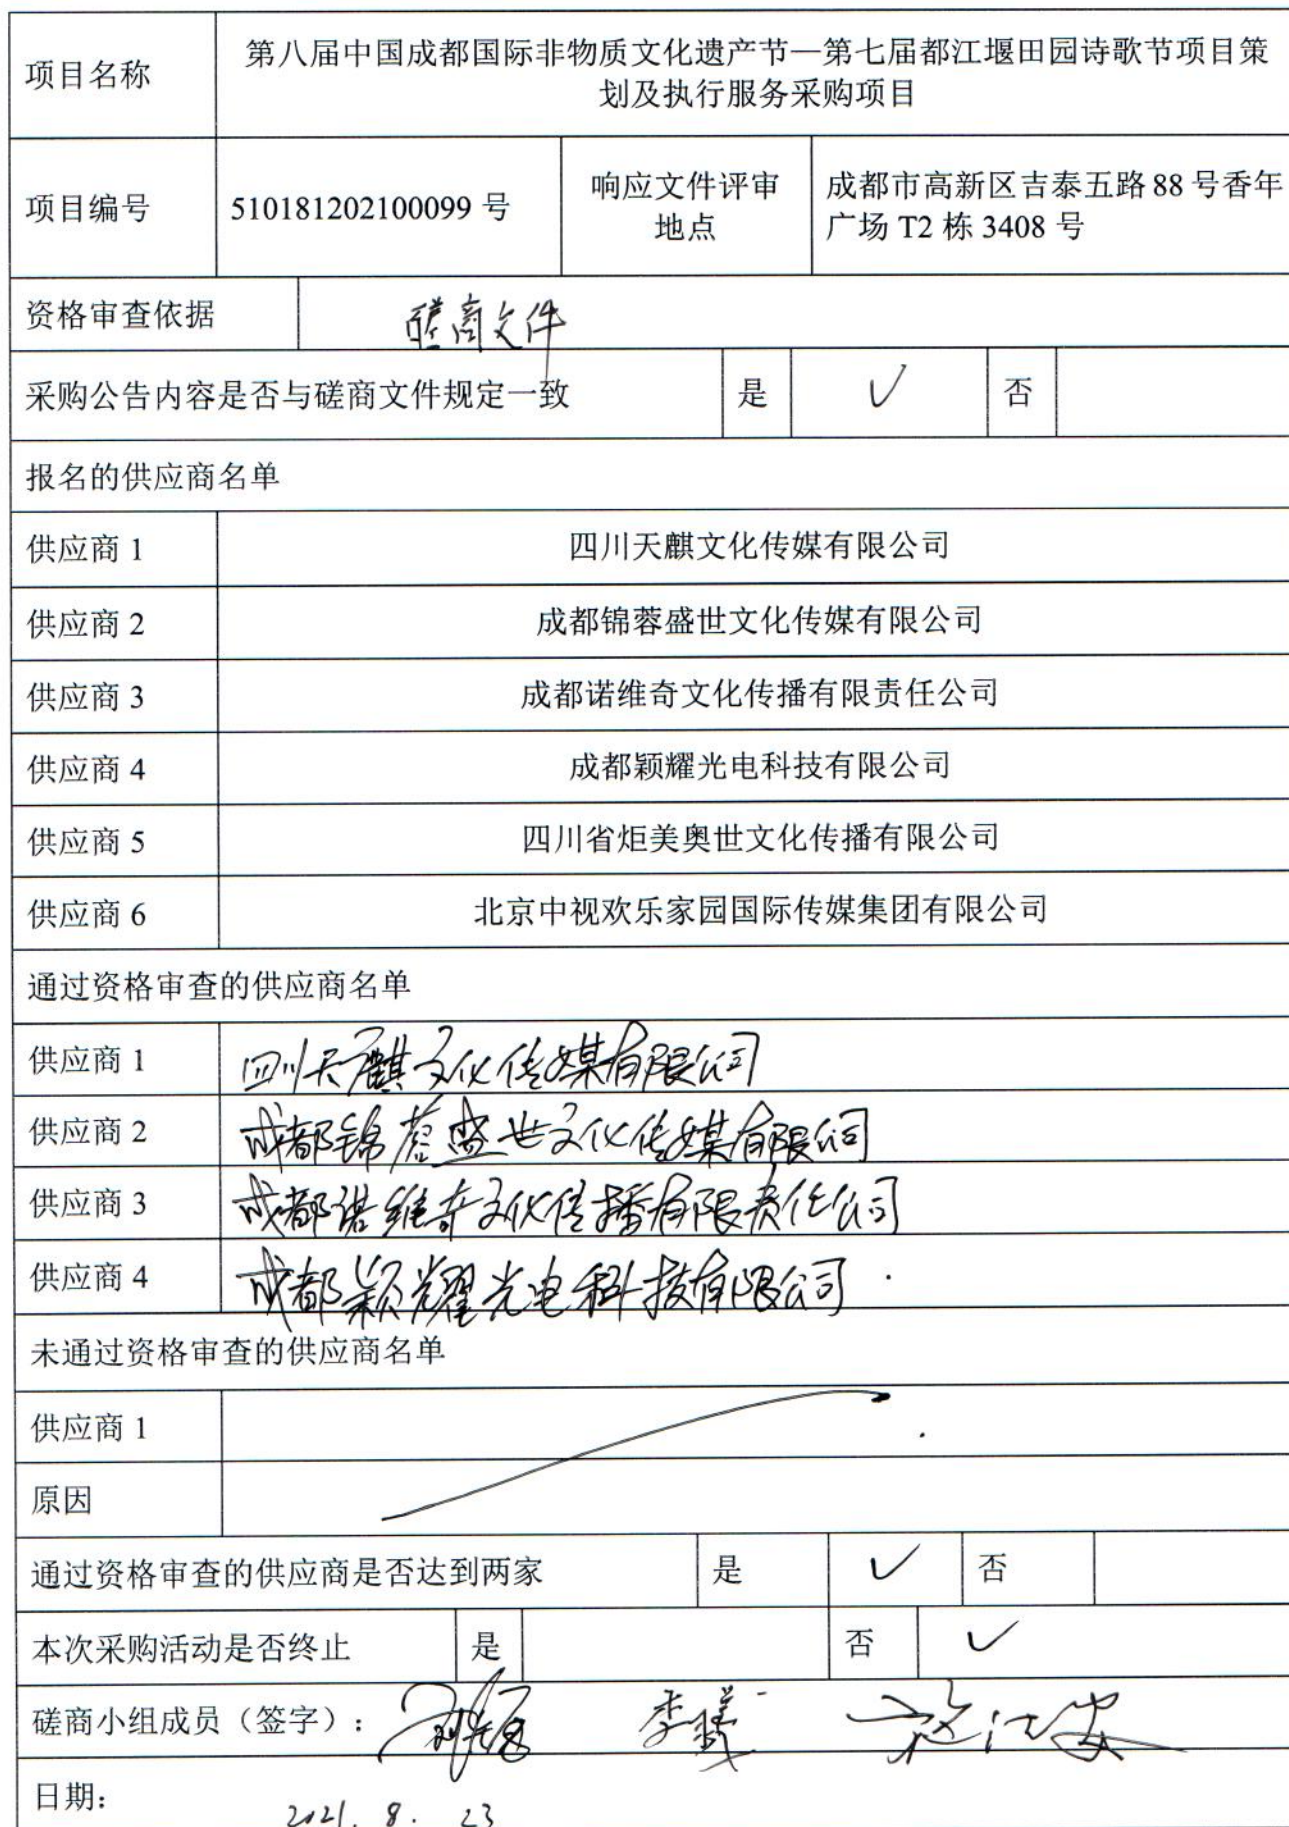 项目名称
第八届中国成都国际非物质文化遗产节—第七届都江堰田园诗歌节项目策
划及执行服务采购项目
项目编号
510181202100099 号
响应文件评审
地点
成都市高新区吉泰五路 88 号香年
广场 T2 栋 3408 号
资格审查依据
磋商文件
采购公告内容是否与磋商文件规定一致 是 ✓ 否
报名的供应商名单
供应商 1 四川天麒文化传媒有限公司
供应商 2 成都锦蓉盛世文化传媒有限公司
供应商 3 成都诺维奇文化传播有限责任公司
供应商 4 成都颖耀光电科技有限公司
供应商 5 四川省炬美奥世文化传播有限公司
供应商 6 北京中视欢乐家园国际传媒集团有限公司
通过资格审查的供应商名单
供应商 1 四川天麒文化传媒有限公司
供应商 2 成都锦蓉盛世文化传媒有限公司
供应商 3 成都诺维奇文化传播有限责任公司
供应商 4 成都颖耀光电科技有限公司
未通过资格审查的供应商名单
供应商 1
原因
通过资格审查的供应商是否达到两家 是 ✓ 否
本次采购活动是否终止 是 否 ✓
磋商小组成员（签字）：
日期：
2021. 8. 23